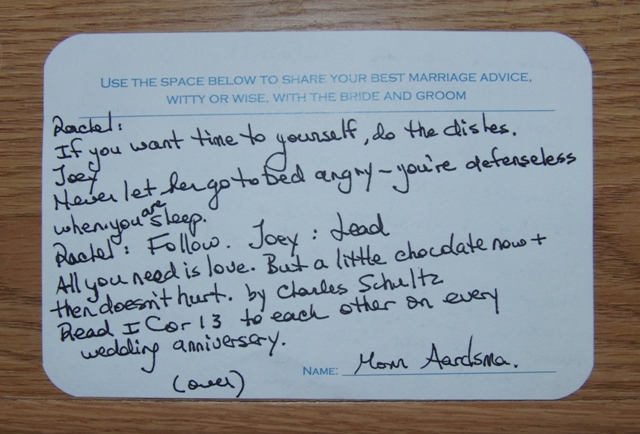 USE THE SPACE BELOW TO SHARE YOUR BEST MARRIAGE ADVICE,
WITTY OR WISE, WITH THE BRIDE AND GROOM
Rachel:
If you want time to yourself, do the dishes.
Joey
Never let her go to bed angry - you're defenseless
when you are sleep.
Rachel: Follow. Joey: Lead
All you need is love. But a little chocolate now +
then doesn't hurt. by Charles Schultz
Read I Cor 13 to each other on every
wedding anniversary.
(over)
NAME: Mom Aardsma.